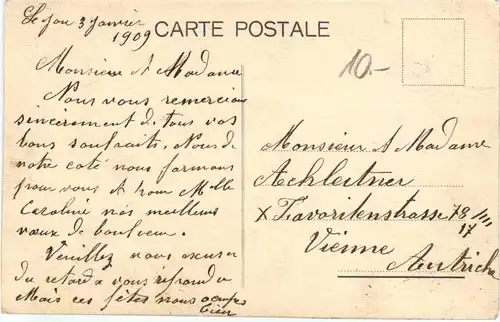 Le 3 Janvier
1909
CARTE POSTALE
10.-
Monsieur et Madame
Nous vous remercions
sincèrement de tous vos
bons souhaits. Nous de
notre coté nous formons
pour vous et pour Melle
Caroline nos meilleurs
vœux de bonheur.
Veuillez nous excuser
du retard a vous répondre
Mais ces fêtes nous occupes
bien
Monsieur et Madame
Achleitner
X Favoritenstrasse 78/III/
17
Vienne
Autriche